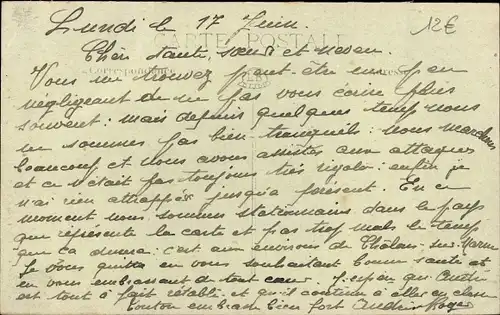 Lundi le 17 Juin.
12€
CARTE POSTALE
Chère tante, sœur et neveu.
Correspondance Adresse
Vous me trouvez peut-être un peu
négligeant de ne pas vous écrire plus
souvent: mais depuis quelques temps nous
ne sommes pas bien tranquils: nous marchons
beaucoup et nous avons assistés aux attaques
et ce n'était pas toujours très rigolo: enfin je
n'ai rien attrappé jusqu'à présent. En ce
moment nous sommes stationnans dans le pays
que représente la carte et pas trop mal: le temps
que ça durera. c'est aux environs de Chalons-sur-Marne
Je vous quitte en vous souhaitant bonne santé et
en vous embrassant de tout cœur. J'espère que André
est tout à fait rétabli et qu'il continue à aller en classe
tonton embrasse bien fort André Roger